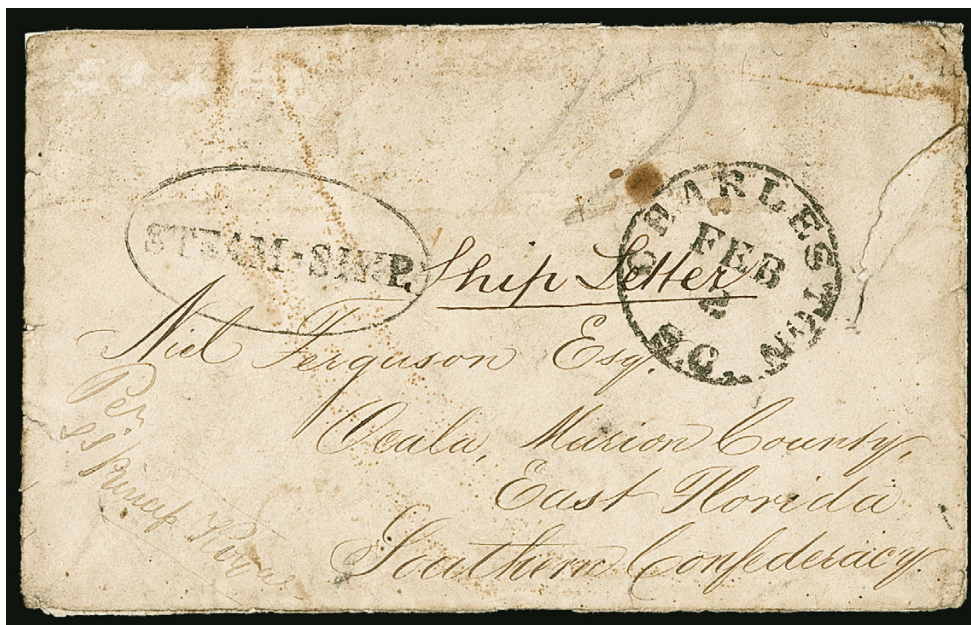 12
STEAM-SHIP.
Ship Letter
CHARLESTON S.C.
FEB
2
Niel Ferguson Esq.
Ocala, Marion County,
East Florida
Southern Confederacy.
Per
SS Princess Royal